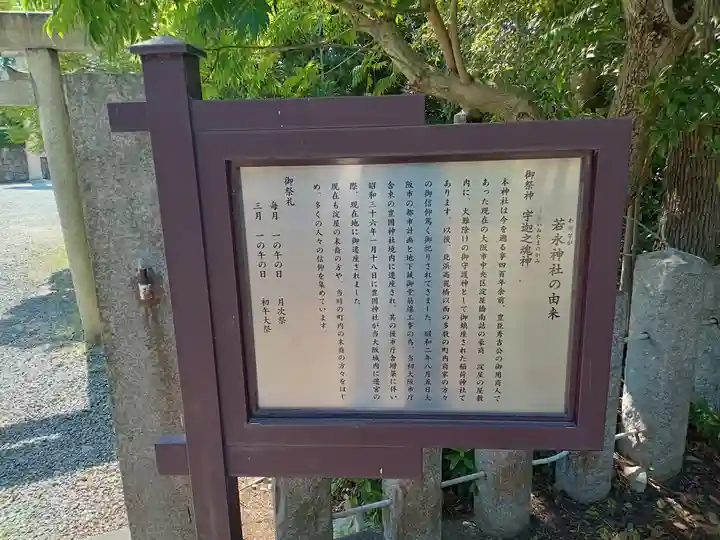 若永神社の由来
御祭神 宇迦之魂神
うかのみたまのかみ
本神社は今を遡る事四百年余前、豊臣秀吉公の御用商人で
あった現在の大阪市中央区淀屋橋南詰の豪商 淀屋の屋敷
内に、火難除けの御守護神として御鎮座された稲荷神社で
あります。以後、北浜高麗橋以西の多数の町内商家の方々
の御信仰篤く御祀りされてきました。昭和二年八月五日大
阪市の都市計画と地下鉄御堂筋線工事の為、当初大阪市庁
舎東の豊國神社境内に遷座され、其の後市庁舎増築に伴い
昭和三十六年一月十八日に豊國神社が当大阪城内に遷宮の
際、現在地に御遷座されました。
現在も淀屋の末裔の方や、当時の町内の末裔の方々をはじ
め、多くの人々の信仰を集めています
御祭礼
毎月 一の午の日 月次祭
三月 一の午の日 初午大祭